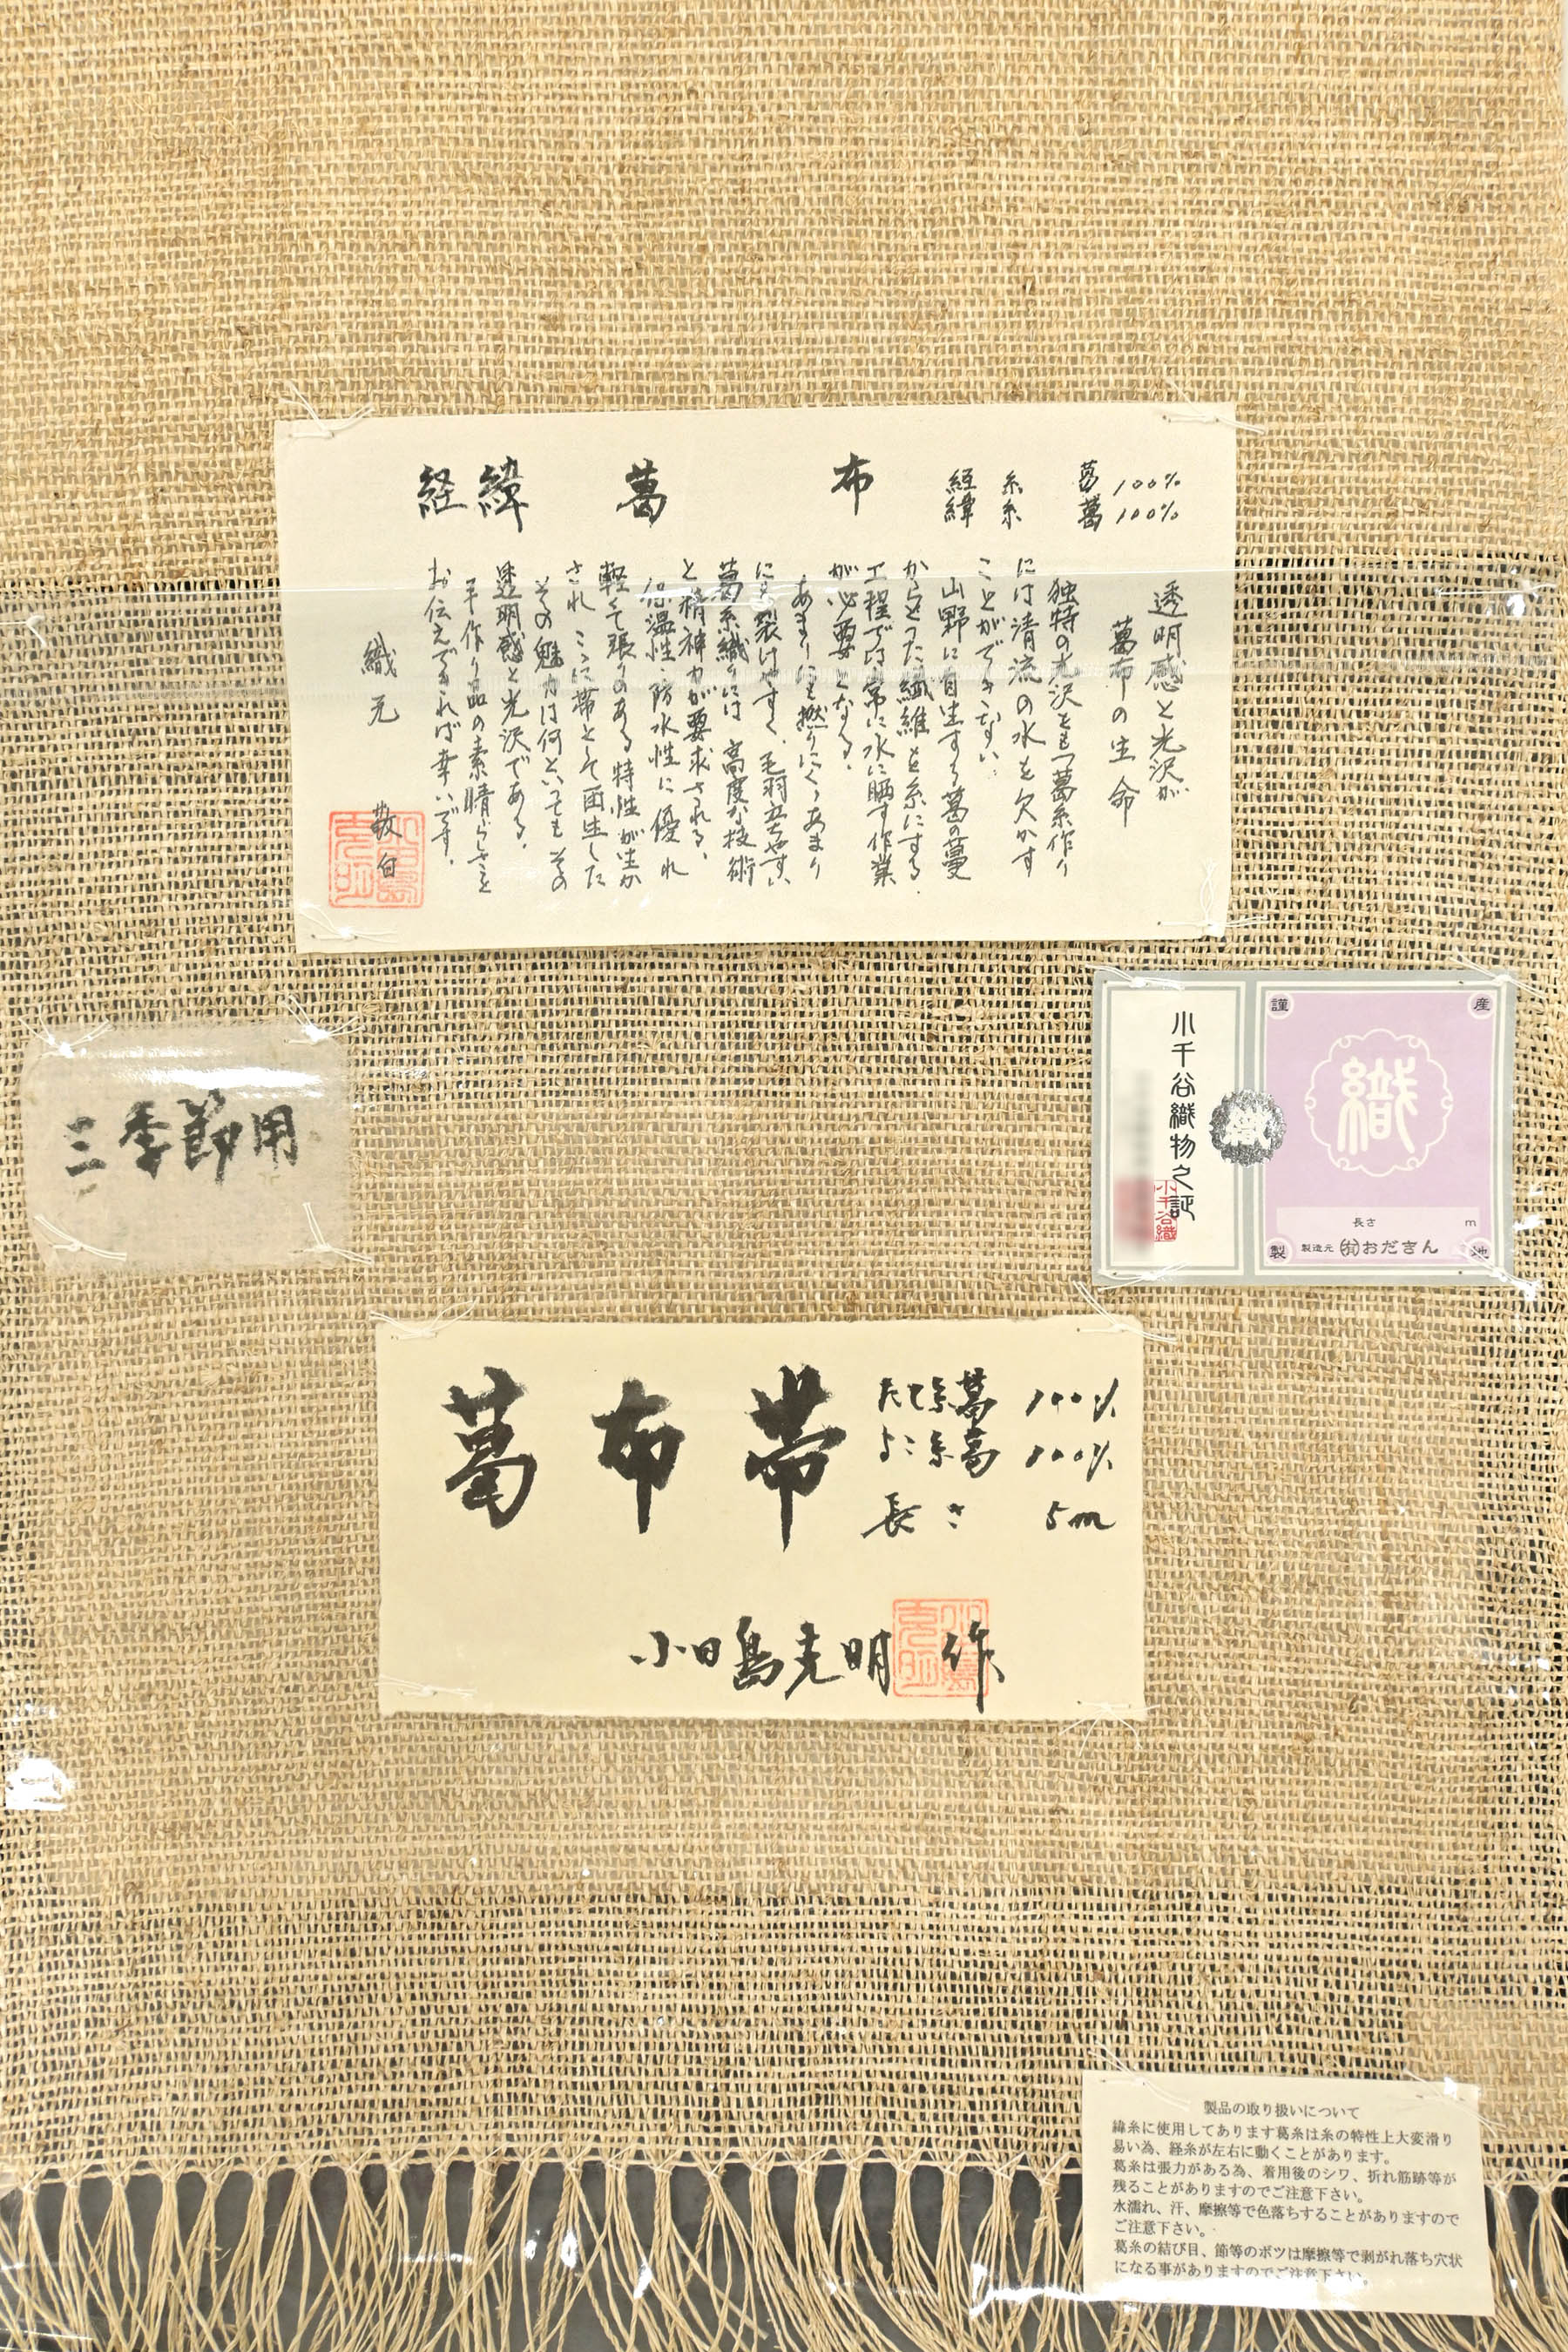 経緯葛布
経糸 葛 100%
緯糸 葛 100%
透明感と光沢が
葛布の生命
独特の光沢をもつ葛糸作り
には清流の水を欠かす
ことができない.
山野に自生する葛の蔓
からとった繊維を糸にする.
工程では常に水に晒す作業
が必要となる.
あまりにも撚りにくゝあまり
にも裂けやすく、毛羽立ちやすい
葛糸織りには 高度な技術
と精神力が要求される.
保温性 防水性に優れ
軽くて張りのある特性が生か
され こゝに帯として面生した
その魅力は何といっても その
透明感と光沢である.
手作り品の素晴らしさを
お伝えできれば幸いです.
織元
敬白
三季節用
小千谷織物之証
小千谷織
織
謹産
織
長さ m
製造元 (有)おだきん
製地
葛布帯
たて糸葛 100%
よこ糸葛 100%
長さ 5m
小田島克明 作
製品の取り扱いについて
緯糸に使用してあります葛糸は糸の特性上大変滑り
易い為、経糸が左右に動くことがあります。
葛糸は張力がある為、着用後のシワ、折れ筋跡等が
残ることがありますのでご注意下さい。
水濡れ、汗、摩擦等で色落ちすることがありますので
ご注意下さい。
葛糸の結び目、節等のボツは摩擦等で剥がれ落ち穴状
になる事がありますのでご注意下さい。